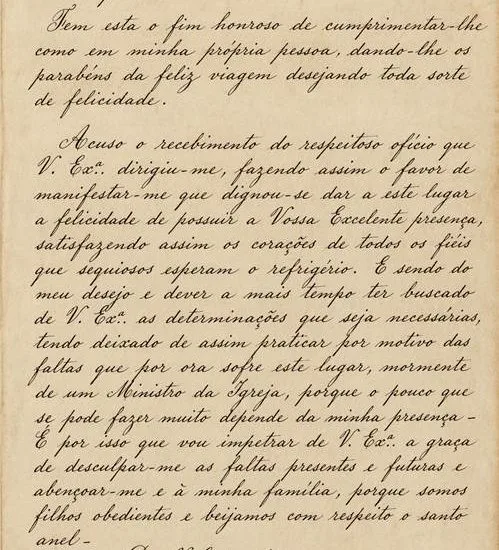 Tem esta o fim honroso de cumprimentar-lhe
como em minha própria pessoa, dando-lhe os
parabéns da feliz viagem desejando toda sorte
de felicidade.
Acuso o recebimento do respeitoso ofício que
V. Exª. dirigiu-me, fazendo assim o favor de
manifestar-me que dignou-se dar a este lugar
a felicidade de possuir a Vossa Excelente presença,
satisfazendo assim os corações de todos os fiéis
que sequiosos esperam o refrigério. E sendo do
meu desejo e dever a mais tempo ter buscado
de V. Exª. as determinações que seja necessárias,
tendo deixado de assim praticar por motivo das
faltas que por ora sofre este lugar, mormente
de um Ministro da Igreja, porque o pouco que
se pode fazer muito depende da minha presença -
É por isso que vou impetrar de V. Exª. a graça
de desculpar-me as faltas presentes e futuras e
abençoar-me e à minha família, porque somos
filhos obedientes e beijamos com respeito o santo
anel -